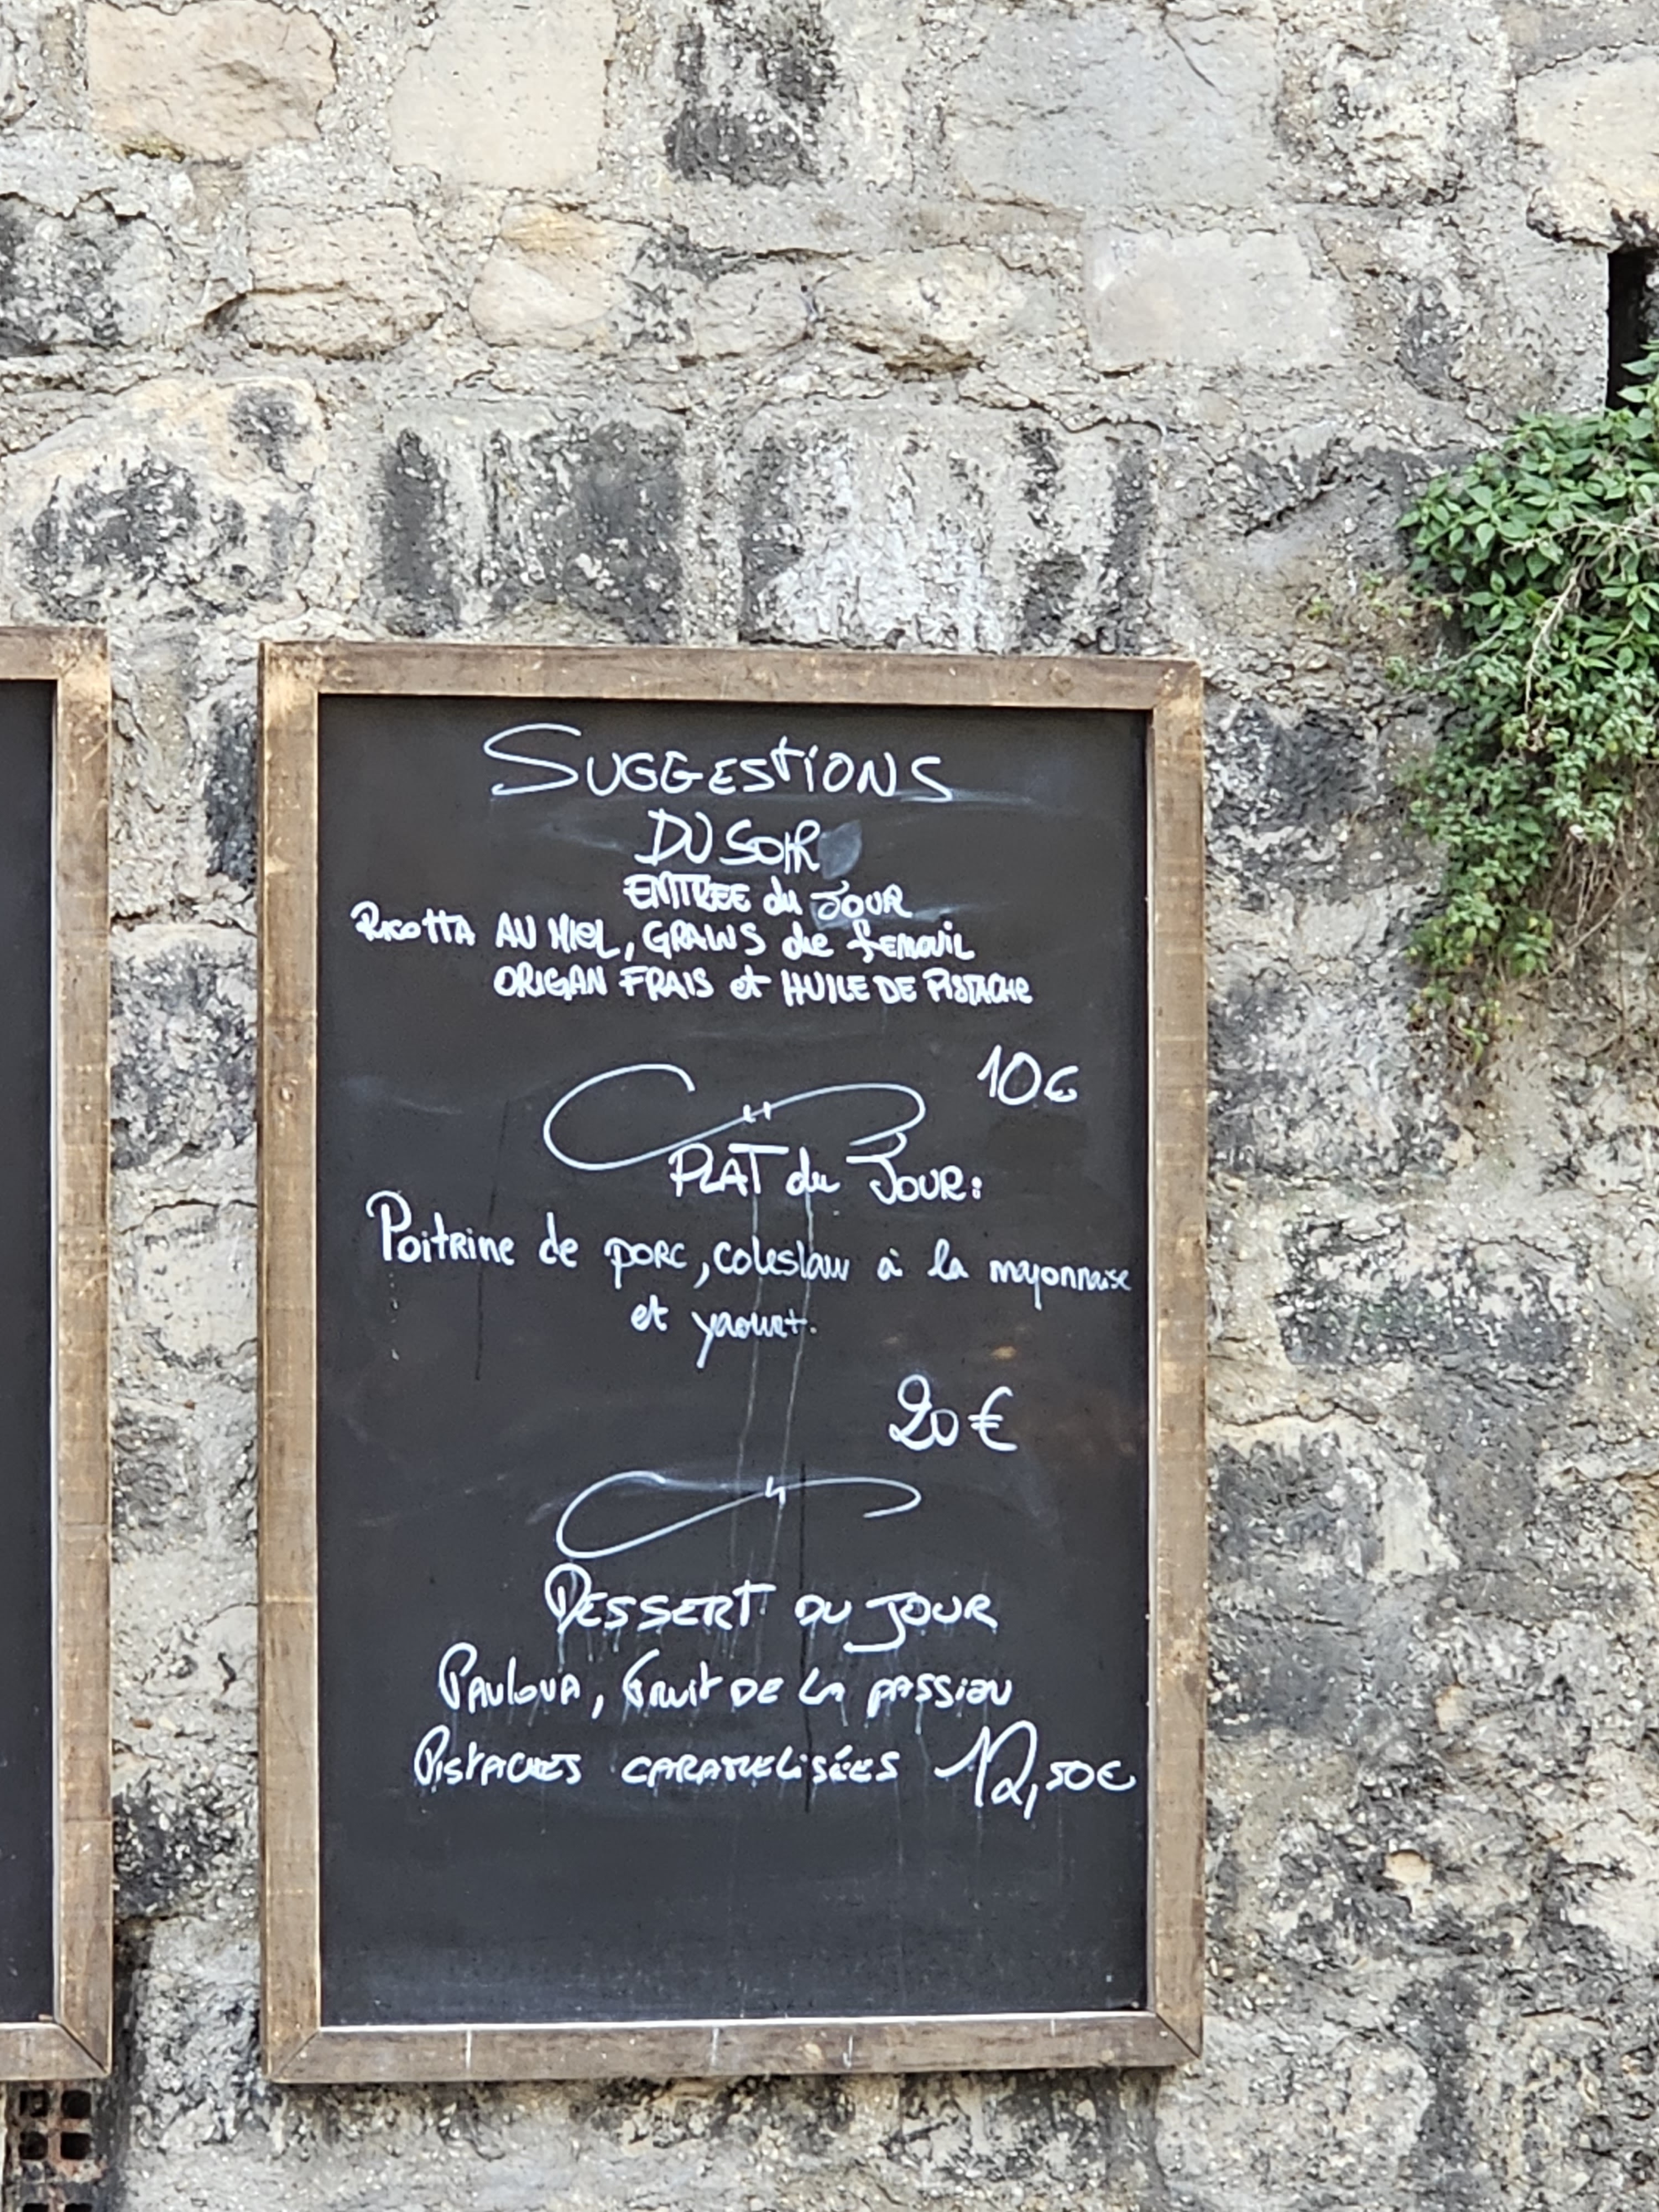 SUGGESTIONS
DU SOIR
ENTREE du JOUR
RICOTTA AU MIEL, GRAINS de fenouil
ORIGAN FRAIS et HUILE DE PISTACHE
10€
PLAT du JOUR:
Poitrine de porc, coleslaw à la mayonnaise
et yaourt.
20€
DESSERT DU JOUR
PAVLOVA, Fruit DE LA PASSION
PISTACHES CARAMELISÉES 12,50€